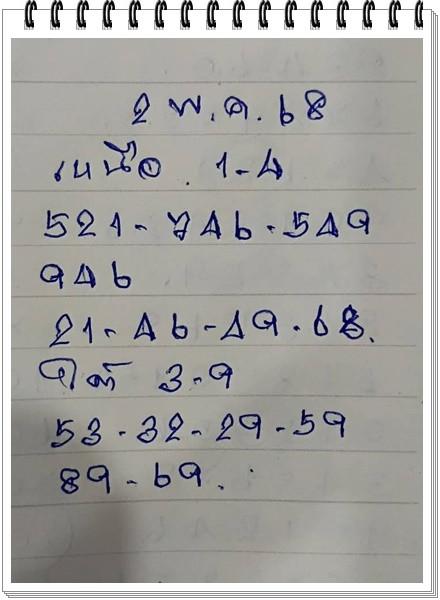 2 พ.ค. 68
เหนือ. 1-4
521-746-549
946
21-46-49-68.
ใต้ 3-9
53-32-29-59
89-69.